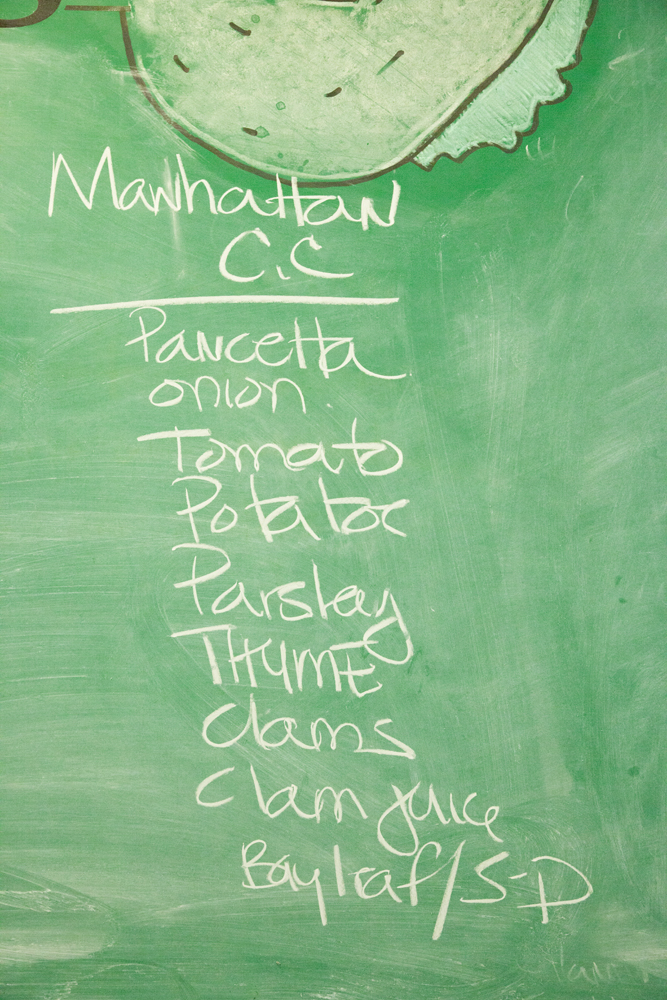 Manhattan
C.C
Pancetta
onion
Tomato
Potatoe
Parsley
THYME
Clams
Clam juice
Bay leaf/S-D